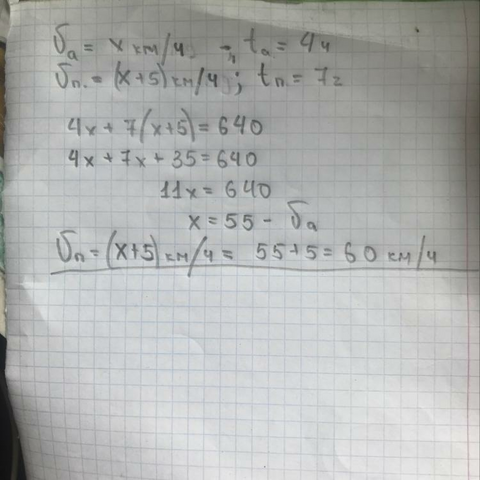 υа = x км/ч; tа = 4ч
υп. = (x+5) км/ч; tп = 7г
4x + 7(x+5) = 640
4x + 7x + 35 = 640
11x = 640
x = 55 - υа
υп = (x+5) км/ч = 55+5 = 60 км/ч